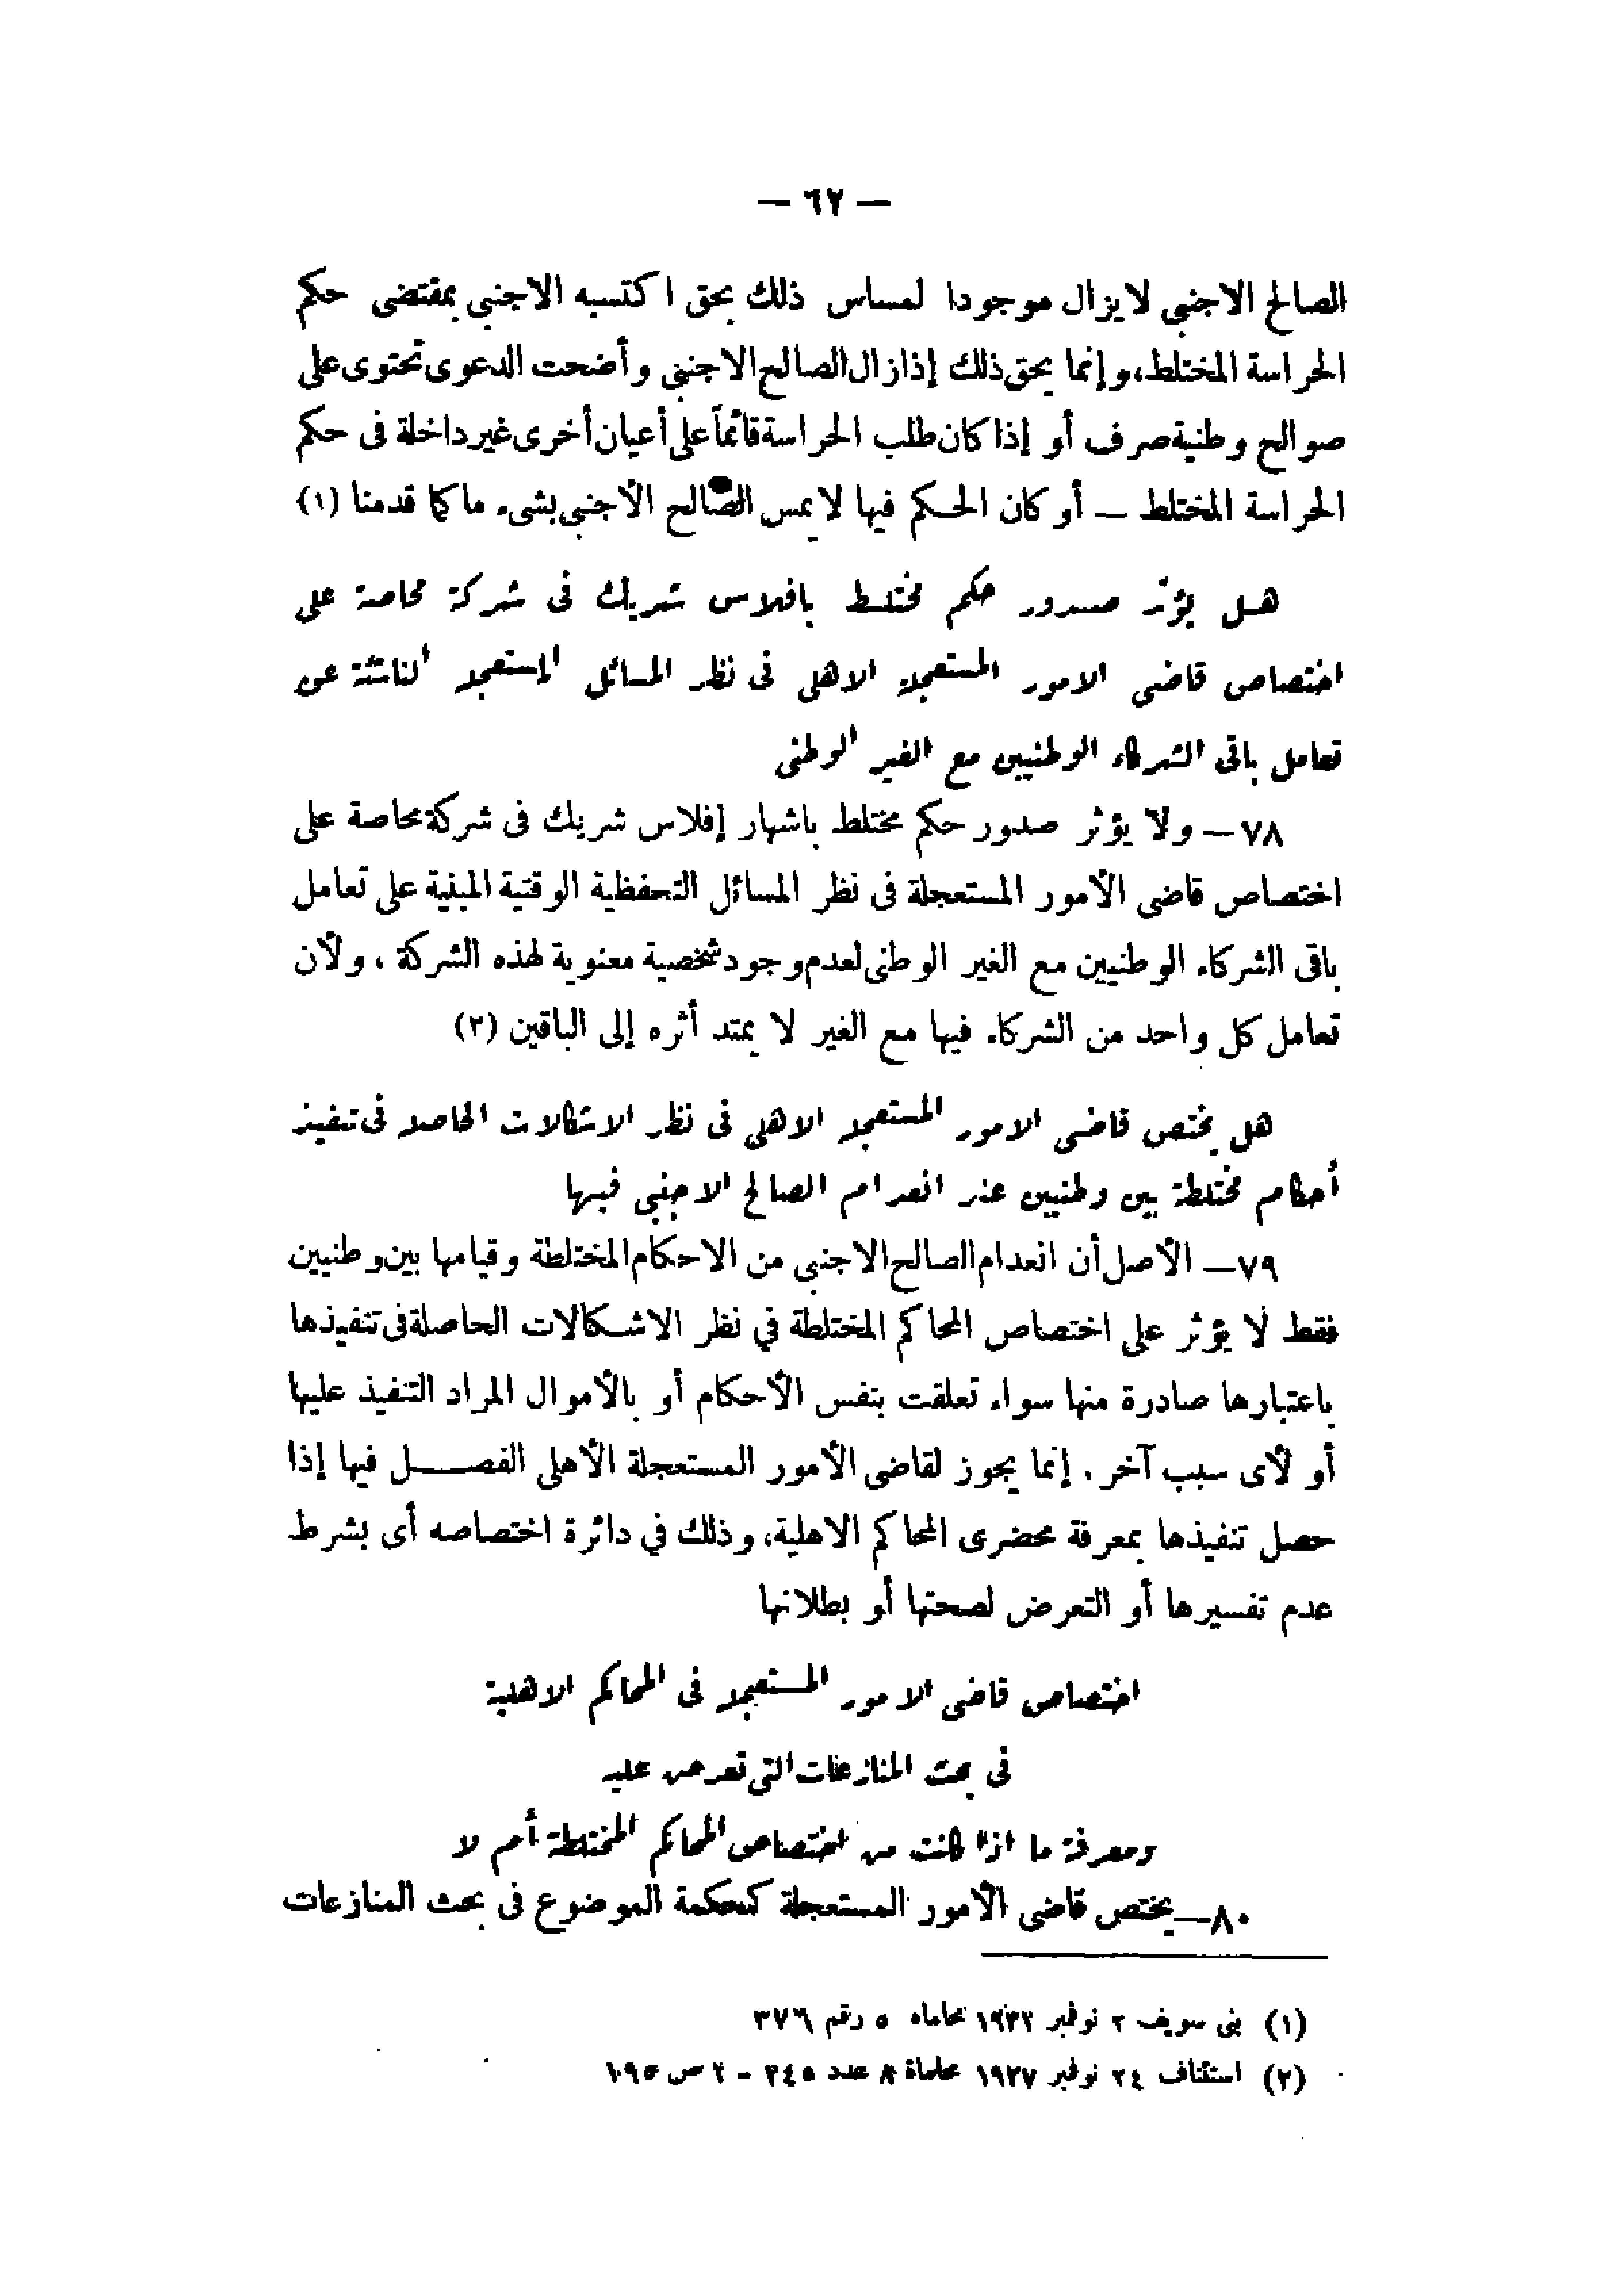 — ٦٢ —
الصالح الاجنبي لا يزال موجودا لمساس ذلك بحق اكتسبه الاجنبي بمقتضى حكم
الحراسة المختلط، وإنما يحق ذلك إذا زال الصالح الاجنبي وأضحت الدعوى تحتوى على
صوالح وطنية صرف أو إذا كان طلب الحراسة قائماً على أعيان أخرى غير داخلة فى حكم
الحراسة المختلط — أو كان الحكم فيها لا يمس الصالح الأجنبي بشىء ما كما قدمنا (١)
هل يؤثر صدور حكم مختلط بافلاس شريك فى شركة محاصة على
اختصاص قاضى الامور المستعجلة الاهلى فى نظر المسائل المستعجلة الناشئة عن
تعامل باقى الشركاء الوطنيين مع الغير الوطنى
٧٨ — ولا يؤثر صدور حكم مختلط باشهار إفلاس شريك فى شركة محاصة على
اختصاص قاضى الأمور المستعجلة فى نظر المسائل التحفظية الوقتية المبنية على تعامل
باقى الشركاء الوطنيين مع الغير الوطنى لعدم وجود شخصية معنوية لهذه الشركة ، ولأن
تعامل كل واحد من الشركاء فيها مع الغير لا يمتد أثره إلى الباقين (٢)
هل يختص قاضى الامور المستعجلة الاهلى فى نظر الاشكالات الحاصلة فى تنفيذ
أحكام مختلطة بين وطنيين عند انعدام الصالح الاجنبي فيها
٧٩ — الأصل أن انعدام الصالح الاجنبي من الاحكام المختلطة وقيامها بين وطنيين
فقط لا يؤثر على اختصاص المحاكم المختلطة في نظر الاشكالات الحاصلة فى تنفيذها
باعتبارها صادرة منها سواء تعلقت بنفس الأحكام أو بالأموال المراد التنفيذ عليها
أو لأى سبب آخر . إنما يجوز لقاضى الأمور المستعجلة الأهلى الفصل فيها إذا
حصل تنفيذها بمعرفة محضرى المحاكم الاهلية، وذلك في دائرة اختصاصه أى بشرط
عدم تفسيرها أو التعرض لصحتها أو بطلانها
اختصاص قاضى الامور المستعجلة فى المحاكم الاهلية
فى بحث المنازعات التى تعرض عليه
ومعرفة ما اذا كانت من اختصاص المحاكم المختلطة أم لا
٨٠ — يختص قاضى الأمور المستعجلة كمحكمة الموضوع فى بحث المنازعات
(١) بنى سويف ٢ نوفمبر ١٩٣٢ محاماه ٥ رقم ٣٧٦
(٢) استئناف ٢٤ نوفمبر ١٩٢٧ محاماة ٨ عدد ٣٤٥ - ٢ ص